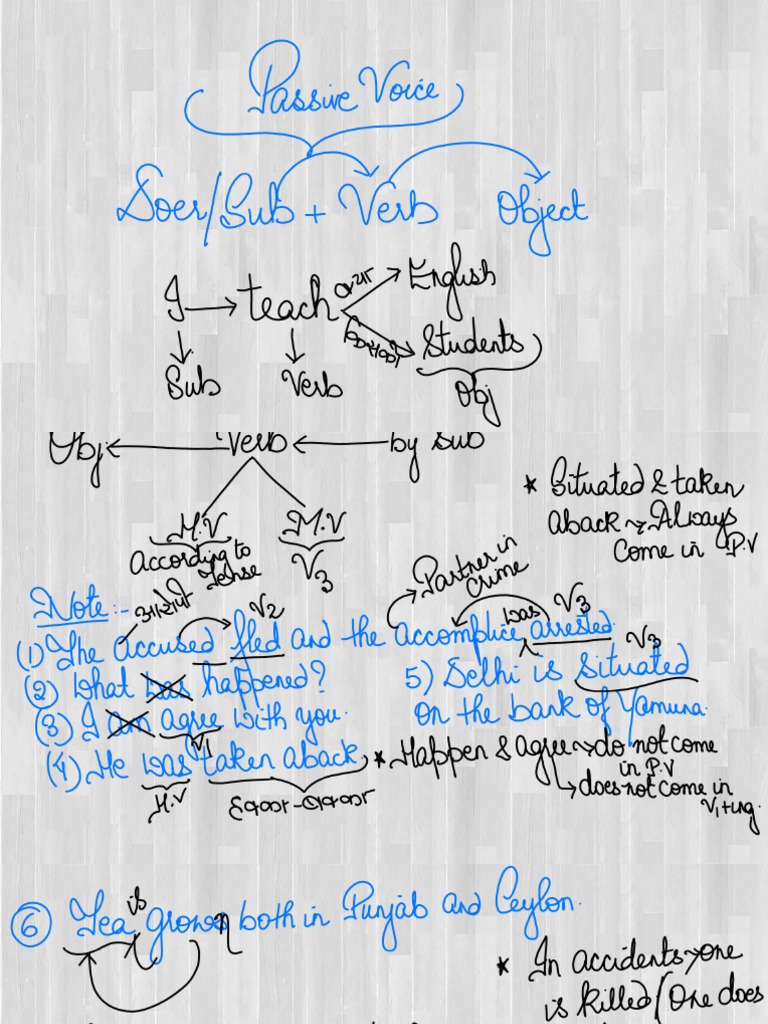 Passive Voice
Doer/Sub + Verb Object
I teach English
Students
Sub Verb Obj
Obj Verb by sub
* Situated & taken
aback → Always
come in P.V
H.V M.V
According to
Tense
V3
Partner in
crime
Note:-
V2 was V3
(1) The accused fled and the accomplice arrested.
V3
(2) What was happened?
5) Delhi is situated
on the bank of Yamuna.
(3) I am agree with you.
V1
(4) He was taken aback
H.V
* Happen & agree → do not come
in P.V
→ does not come in
V1+ing.
is
6 Tea grown both in Punjab and Ceylon.
* In accidents → one
is killed/(One does